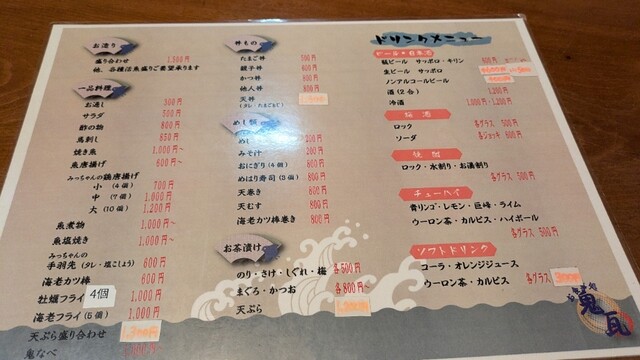 お造り
盛り合わせ 1,500円
他、各種活魚盛りご要望承ります
一品料理
お通し 300円
サラダ 500円
酢の物 800円
馬刺し 850円
焼き魚 1,000円~
魚唐揚げ 600円~
みっちゃんの鶏唐揚げ
小 (4個) 700円
中 (7個) 1,000円
大 (10個) 1,200円
魚煮物 1,000円~
魚塩焼き 1,000円~
みっちゃんの
手羽先 (タレ・塩こしょう) 600円
海老カツ棒 600円
牡蠣フライ 4個 1,000円
海老フライ (5個) 1,000円
天ぷら盛り合わせ
鬼なべ
丼もの
たまご丼 500円
親子丼 600円
かつ丼 800円
他人丼 800円
天丼
(タレ・たまごとじ)
めし類
めし 200円
みそ汁 200円
おにぎり (4個) 800円
めはり寿司 (5個) 800円
天巻き 800円
天むす 800円
海老カツ棒巻き 800円
お茶漬け
のり・さけ・しぐれ・梅 各500円
まぐろ・かつお 各800円~
天ぷら
ドリンクメニュー
ビール・日本酒
瓶ビール サッポロ・キリン 600円
生ビール サッポロ
ノンアルコールビール
酒 (2合) 1,200円
冷酒 1,000円・1,200円
梅酒
ロック 各グラス 500円
ソーダ 各ジョッキ 600円
焼酎
ロック・水割り・お湯割り
各グラス 500円
チューハイ
青リンゴ・レモン・巨峰・ライム
ウーロン茶・カルピス・ハイボール
各グラス 500円
ソフトドリンク
コーラ・オレンジジュース
ウーロン茶・カルピス 各グラス 300円
鬼瓦